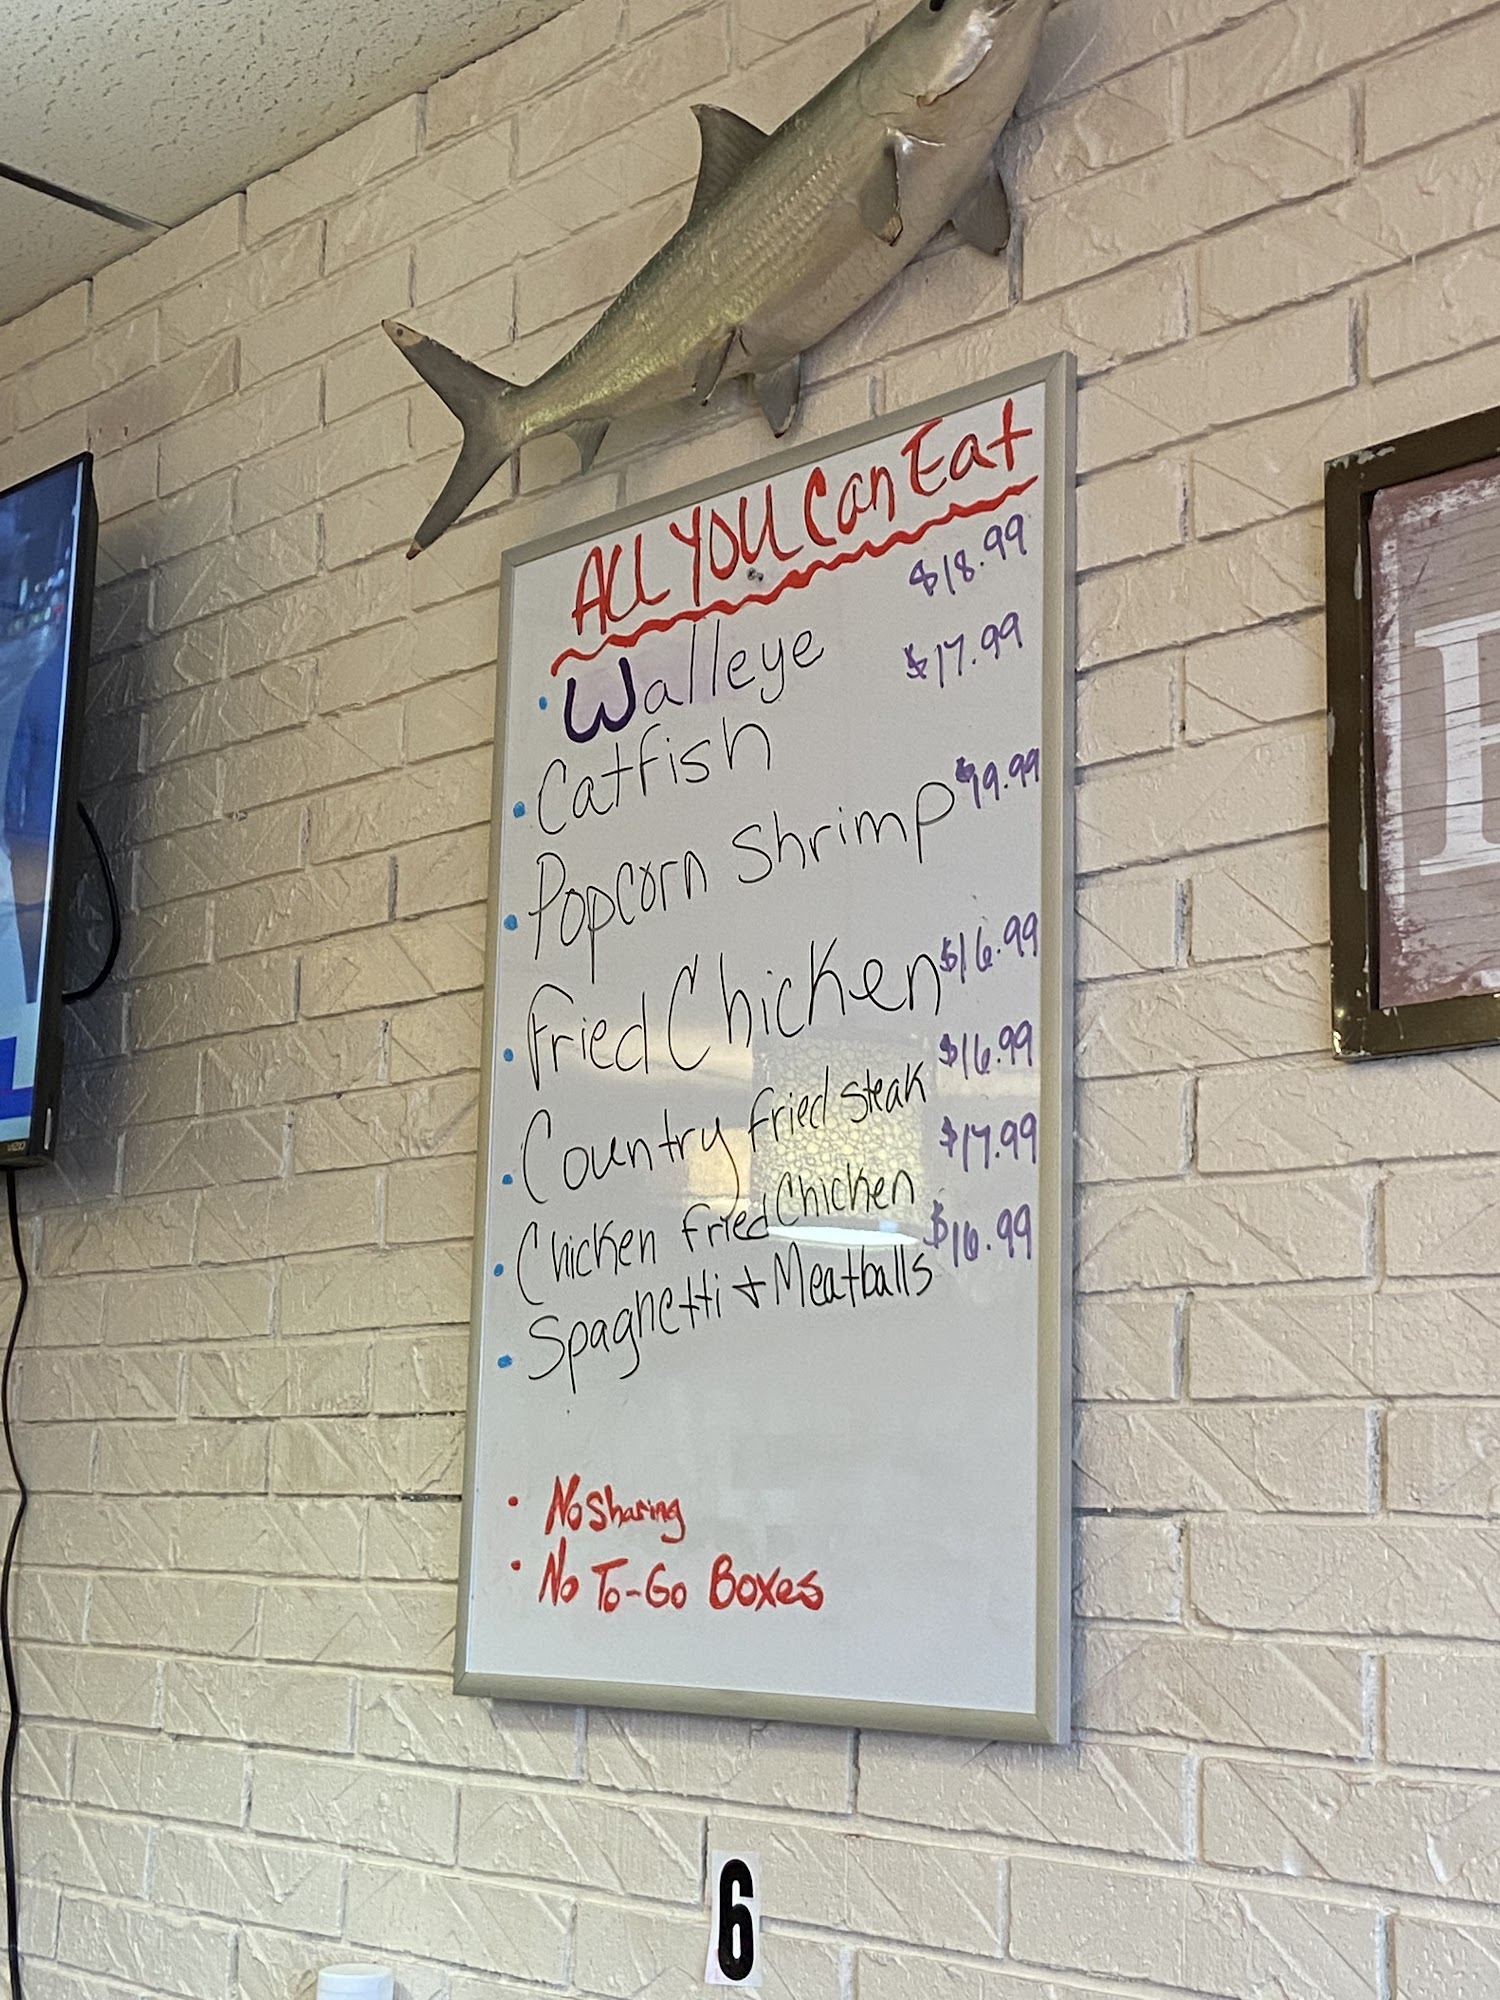 All You Can Eat
• Walleye $18.99
• Catfish $17.99
• Popcorn Shrimp
• Fried Chicken $16.99
• Country Fried Steak $16.99
• Chicken Fried Chicken $17.99
• Spaghetti + Meatballs $16.99
• No Sharing
• No To-Go Boxes
6
VIZIO